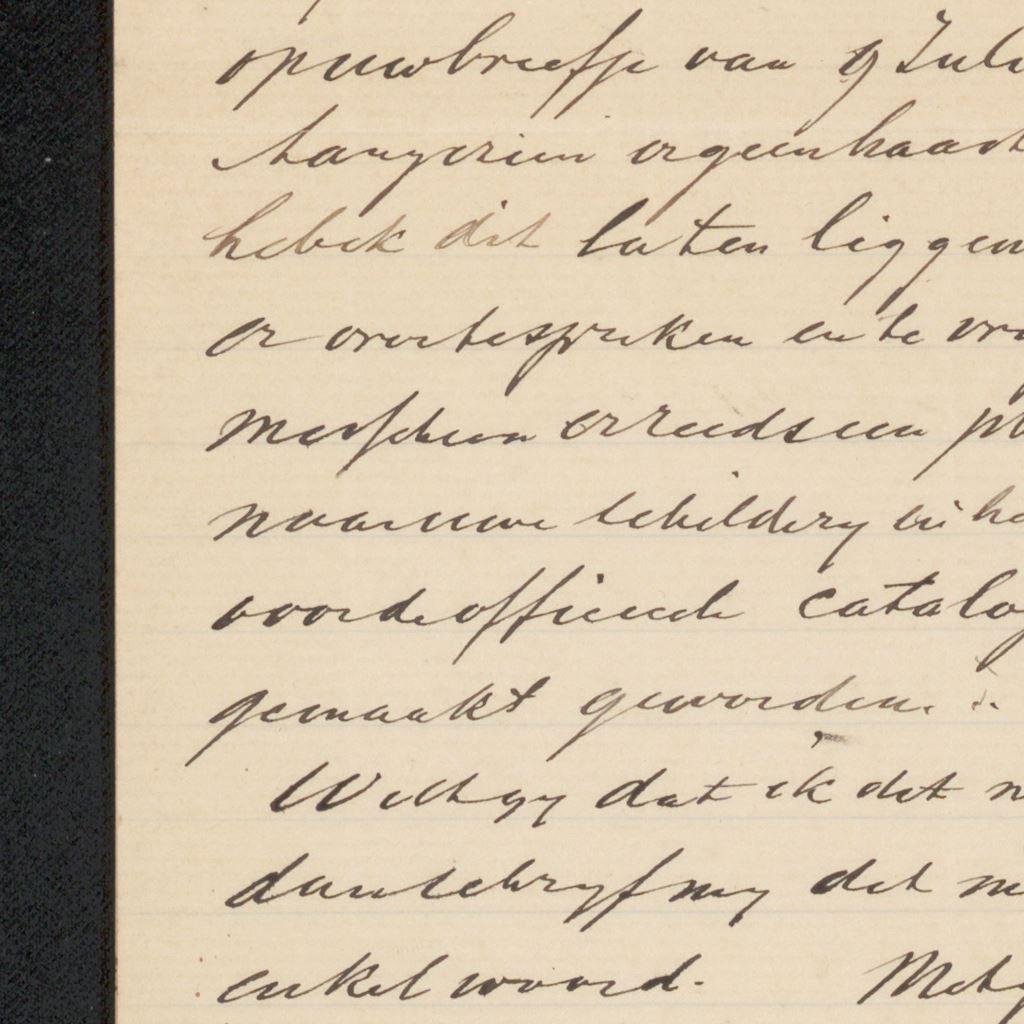 op uw briefje van 9 Juli
Aangezien er geen haast
heb ik dit laten liggen
er over te spreken en te vra
misschien er reeds een pl
naar uwe schildery in he
voor de officieele catalo
gemaakt geworden.
Wilt gy dat ik dit n
dan schryf my dit m
enkel woord. Met